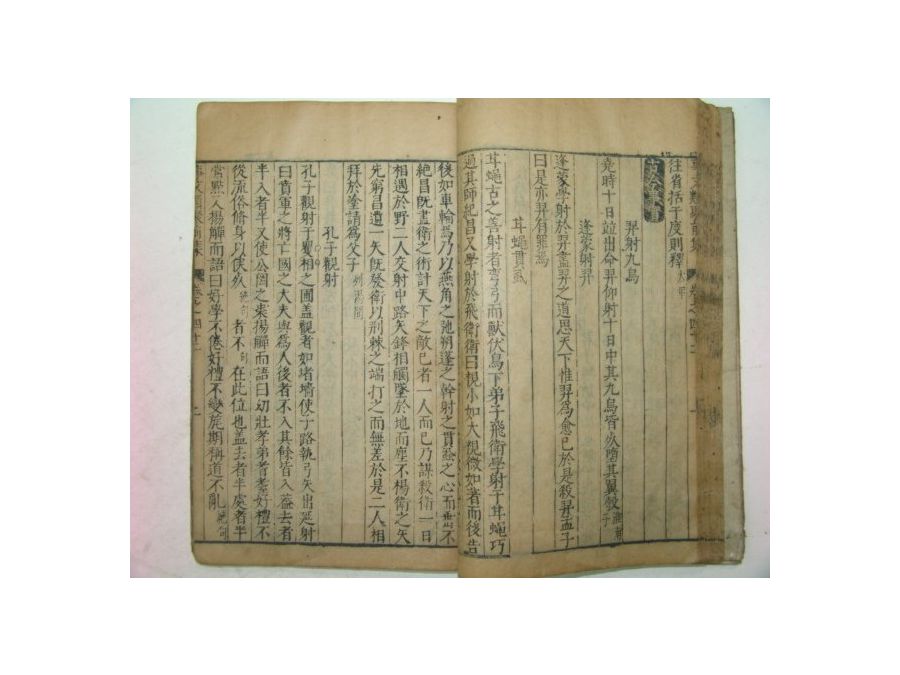 往省括于度則釋太甲
古今事實
羿射九烏
堯時十日竝出命羿仰射十日中其九烏皆死墮其翼
逢蒙射羿
逢蒙學射於羿盡羿之道思天下惟羿爲愈已於是殺羿孟子
曰是亦羿有罪焉
耳蠅貫虱
耳蠅古之善射者彎弓而獸伏鳥下弟子飛衛學射于耳蠅巧
過其師紀昌又學射於飛衛衛曰視小如大視微如著而後告
後如車輪焉乃以燕角之弧朔蓬之簳射之貫蝨之心而垂不
絶昌旣盡衛之術計天下之敵已者一人而已乃謀殺衛一日
相遇於野二人交射中路矢鋒相觸墜於地而塵不楊衛之矢
先窮昌遺一矢旣發衛以荆棘之端打之而無差於是二人相
拜於塗請爲父子列子湯問
孔子觀射
孔子觀射于矍相之圃盖觀者如堵墻使子路執弓矢出延射
曰賁軍之將亡國之大夫與爲人後者不入其餘皆入葢去者
半入者半又使公罔之裘揚觶而語曰幼壯孝弟耆耋好禮不
從流俗脩身以俟死絶句者不句在此位也盖去者半處者半
點入揚觶而語曰好學不倦好禮不變旄期稱道不亂絶句